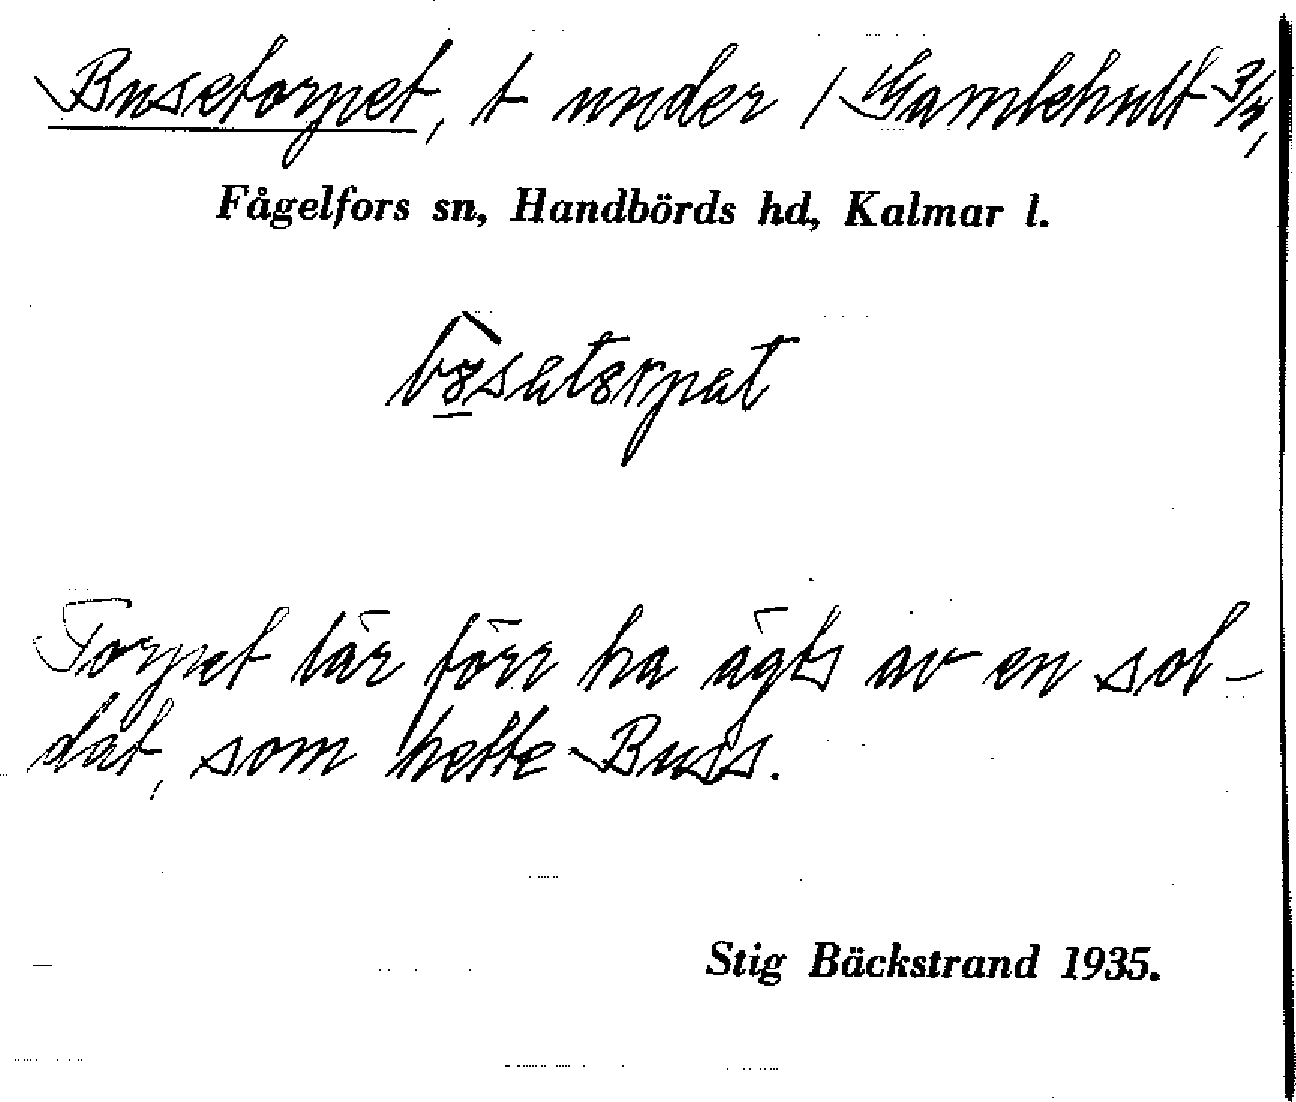 Busetorpet, t under 1 Gamlehult 3/4,
Fågelfors sn, Handbörds hd, Kalmar l.
Torpet lär förr ha ägts av en sol-
dat, som hette Buss.
Stig Bäckstrand 1935.